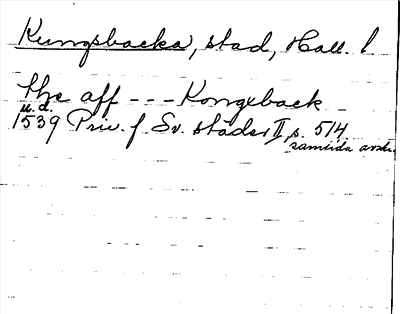 Kungsbacka, stad, Hall. l
the aff --- Kongxback
u.d.
1539 Priv. f. Sv. städer II, s. 514
samtida avskr.